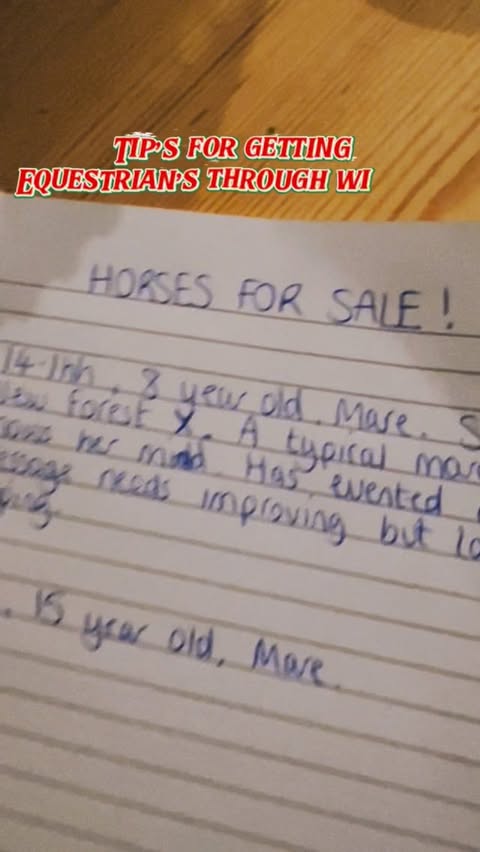 TIP'S FOR GETTING
EQUESTRIAN'S THROUGH WI
HORSES FOR SALE!
14.1hh, 8 year old. Mare. S
New Forest X. A typical mar
her mind. Has evented
needs improving but lo
. 15 year old, Mare.